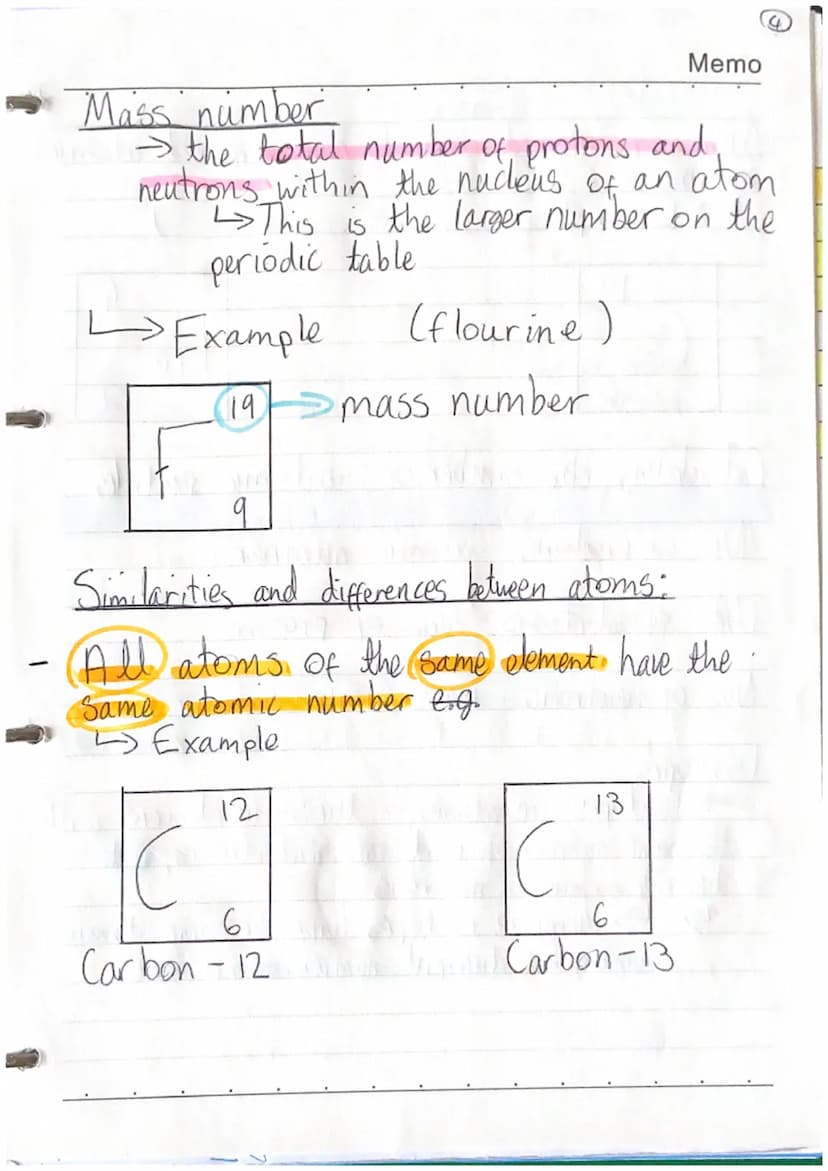 4
Memo
Mass number
→ the total number of protons and
neutrons within the nucleus of an atom
↳ This is the larger number on the
periodic table
↳ Example (flourine)
19 → mass number
F
9
Similarities and differences between atoms:
- All atoms of the same element have the
same atomic number e.g.
↳ Example
12 13
C C
6 6
Carbon-12 Carbon-13